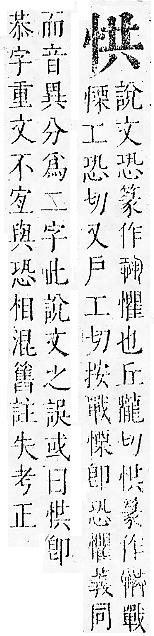 㤨
說文恐篆作懼也丘隴切㤨篆作戰
慄工恐切又戶工切按戰慄即恐懼義同
而音異分爲二字此說文之誤或曰㤨即
恭字重文不宐與恐相混舊註失考正